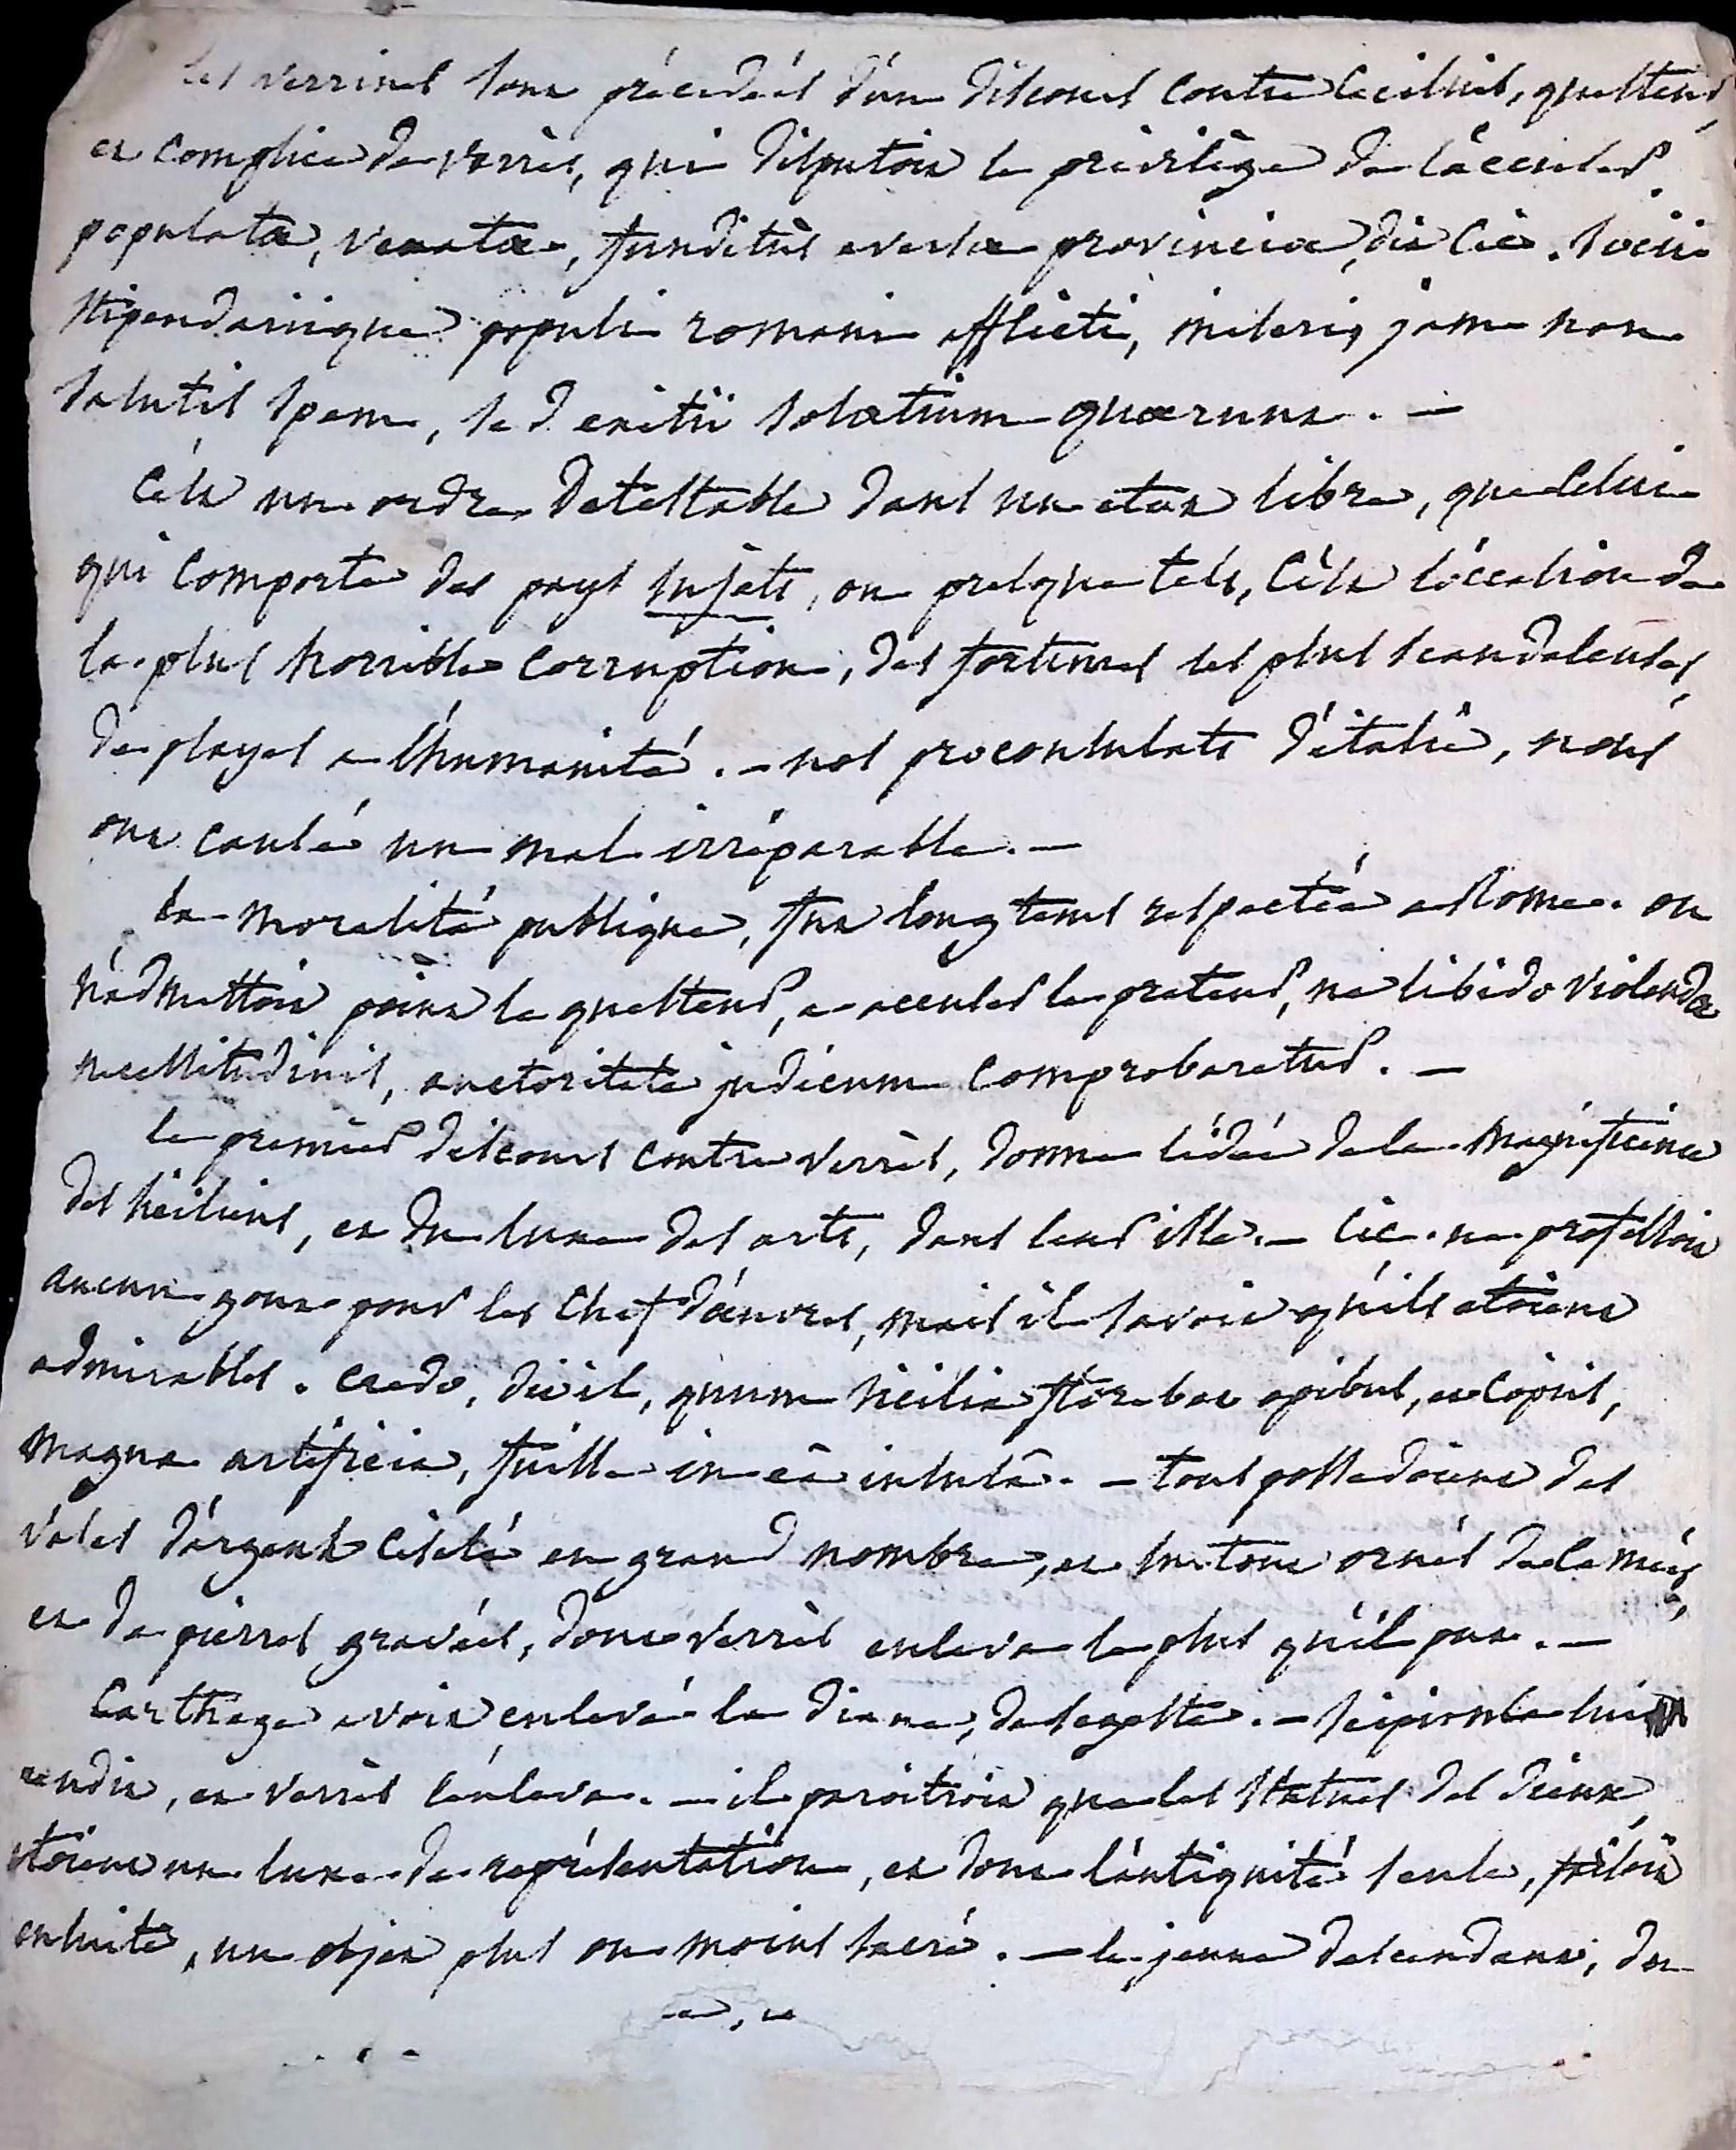 les verrines sont précédées d'un discours contre Cecilius, questeur,
et complice de verrès, qui disputoit le privilège de l'accuser.
populatæ, vexatæ, funditùs eversæ provinciæ, dit Cic. socii
stipendariique populi romani afflicti, miseri, jam non
salutis spem, sed exitii solatium quærunt. —
C'est un ordre détestable dans un état libre, que celui
qui comporte des pays sujets, ou presque tels, C'est l'occasion de
la plus horrible corruption, des fortunes les plus scandaleuses,
de playes a l'humanité. — nos proconsulats d'italie, nous
ont causé un mal irréparable. —
la moralité publique, fut longtems respectée a Rome. on
n'admettoit point le questeur, a accuser le preteur, ne libido violandæ
necessitudinis, auctoritate judicum comprobaretur. —
le premier discours contre verrès, donne l'idée de la magnificence
des siciliens, et du luxe des arts, dans leur isle. — Cic. ne professoit
aucun gout pour les Chef d'œuvres, mais il savoit qu'ils etoient
admirables. Credo, dit il, quum sicilia florebat opibus, et copiis,
magna artificia, fuisse in eâ insulâ. — tous possedoient des
vases d'argent ciselé en grand nombre, et surtout ornés de camées,
et de pierres gravées, dont verrès enleva le plus qu'il put. —
Carthage avoit enlevé la diane, de segeste. — scipion la lui
rendit, et verrès l'enleva. — il paroitroit que les statues des dieux,
etoient un luxe de représentation, et dont l'antiquité seule, faisoit
ensuite, un objet plus ou moins sacré. — le jeune descendant, de